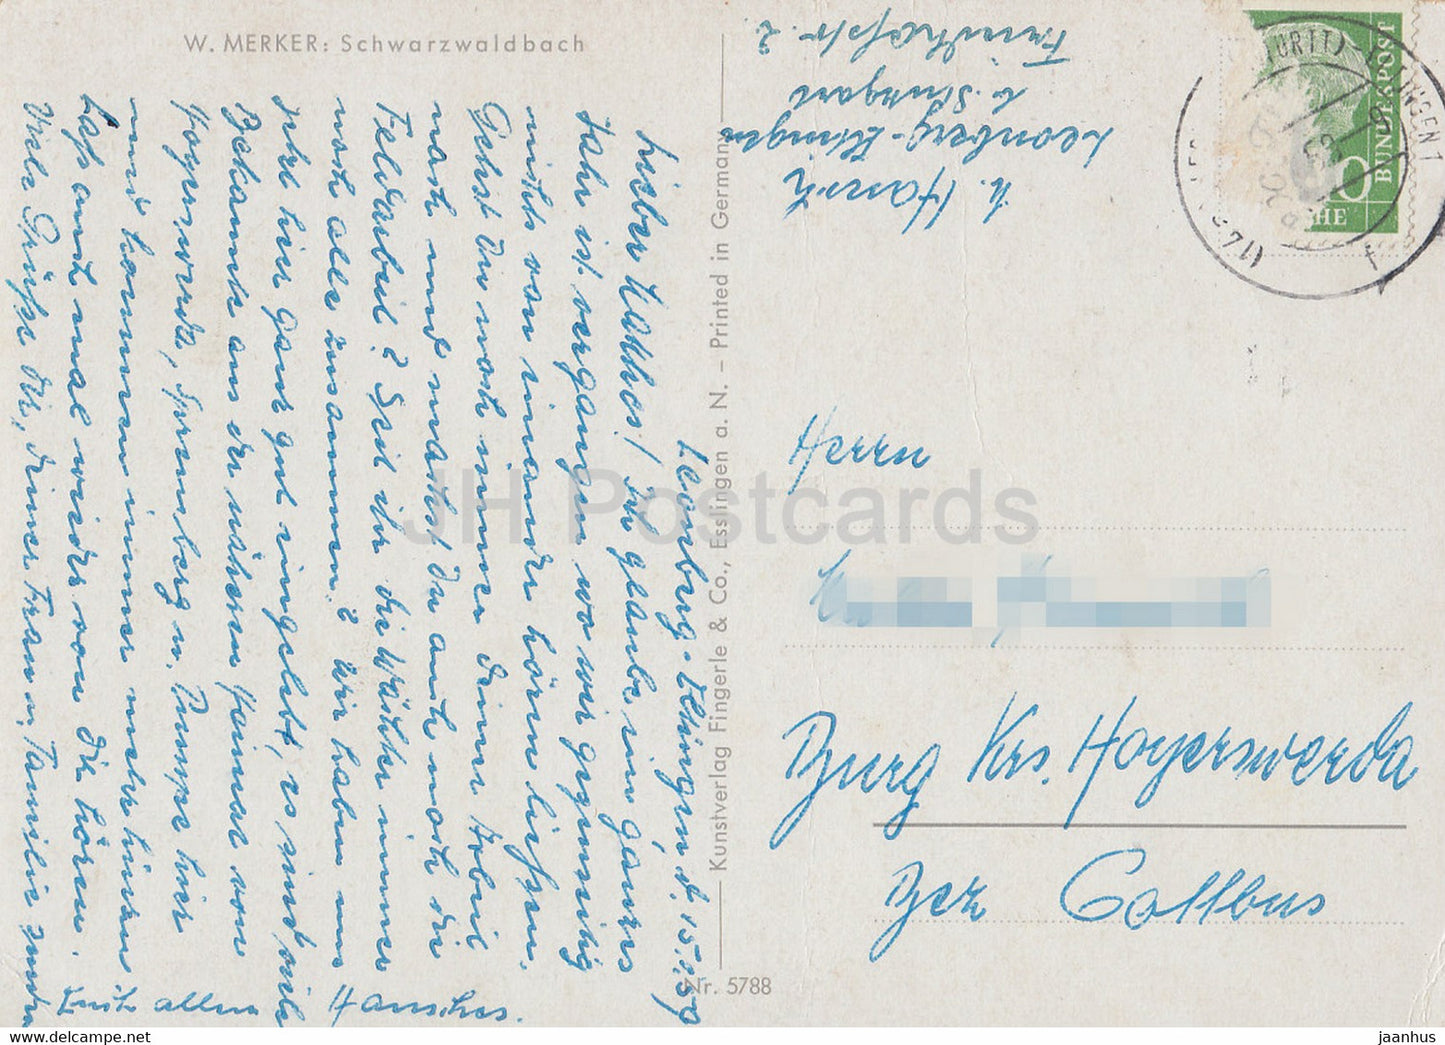 W. MERKER: Schwarzwaldbach
Leonberg-Eltingen, d. 15.
Lieber Kollhos! Ich glaube, ein ganzes
Jahr ist vergangen wo wir gegenseitig
nichts von einander hören liessen.
Gehst Du noch immer deiner Arbeit
nach und machst Du auch noch die
Feldarbeit? Seid ihr die Wächter immer
noch alle zusammen? Wir haben uns
jetzt hier ganz gut eingelebt, es sind viele
Bekannte aus der näheren Heimat von
Hoyerswerda, Spremberg u. hier
und kommen immer mehr hinzu
Lass auch mal wieder von Dir hören.
Viele Grüsse Dir, deiner Frau u. Familie
allen
Kunstverlag Fingerle & Co., Esslingen a. N. – Printed in Germany
Nr. 5788
Leonberg-
b. Stuttgart
2.
BUNDESPOST
Herrn
Burg Krs. Hoyerswerda
Bez Cottbus
JH Postcards
www.jaanhus-postcards.ee
jaanhus